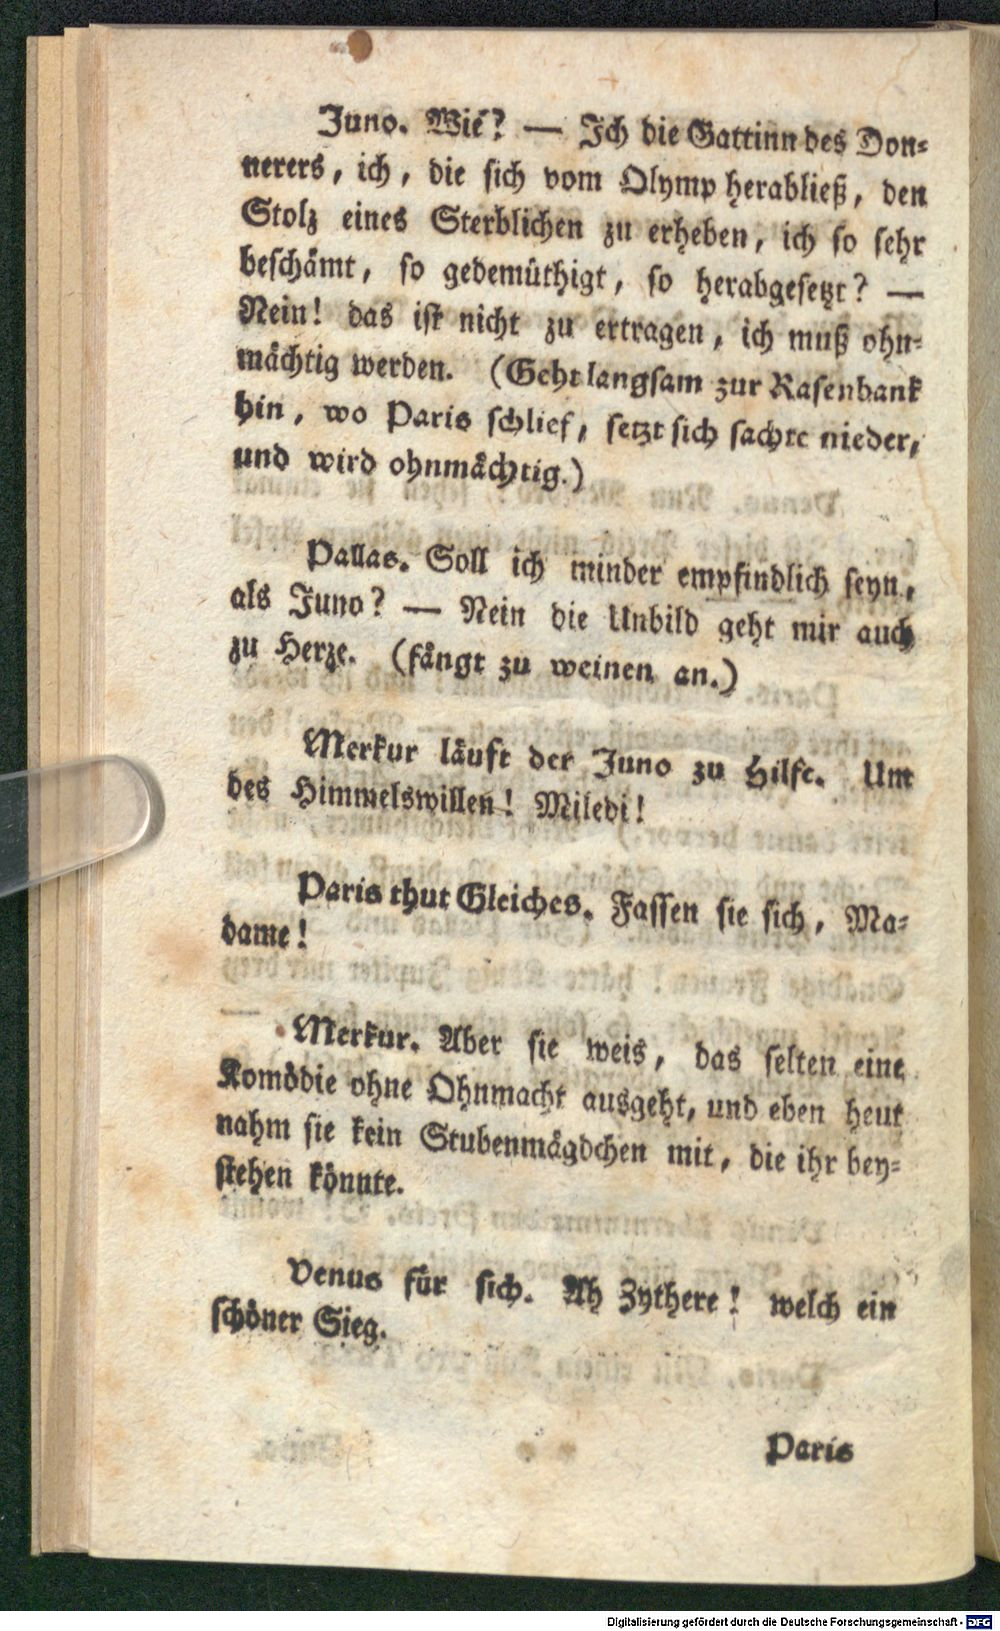 Juno. Wie? — Ich die Gattinn des Don-
nerers, ich, die sich vom Olymp herabließ, den
Stolz eines Sterblichen zu erheben, ich so sehr
beschämt, so gedemüthigt, so herabgesetzt? —
Nein! das ist nicht zu ertragen, ich muß ohn-
mächtig werden. (Geht langsam zur Rasenbank
hin, wo Paris schlief, setzt sich sachte nieder,
und wird ohnmächtig.)
Pallas. Soll ich minder empfindlich seyn,
als Juno? — Nein die Unbild geht mir auch
zu Herze. (fängt zu weinen an.)
Merkur läuft der Juno zu Hilfe. Um
des Himmelswillen! Miledi!
Paris thut Gleiches. Fassen sie sich, Ma-
dame!
Merkur. Aber sie weis, das selten eine
Komödie ohne Ohnmacht ausgeht, und eben heut
nahm sie kein Stubenmägdchen mit, die ihr bey-
stehen könnte.
Venus für sich. Ah Zythere! welch ein
schöner Sieg.
Paris
Digitalisierung gefördert durch die Deutsche Forschungsgemeinschaft - DFG